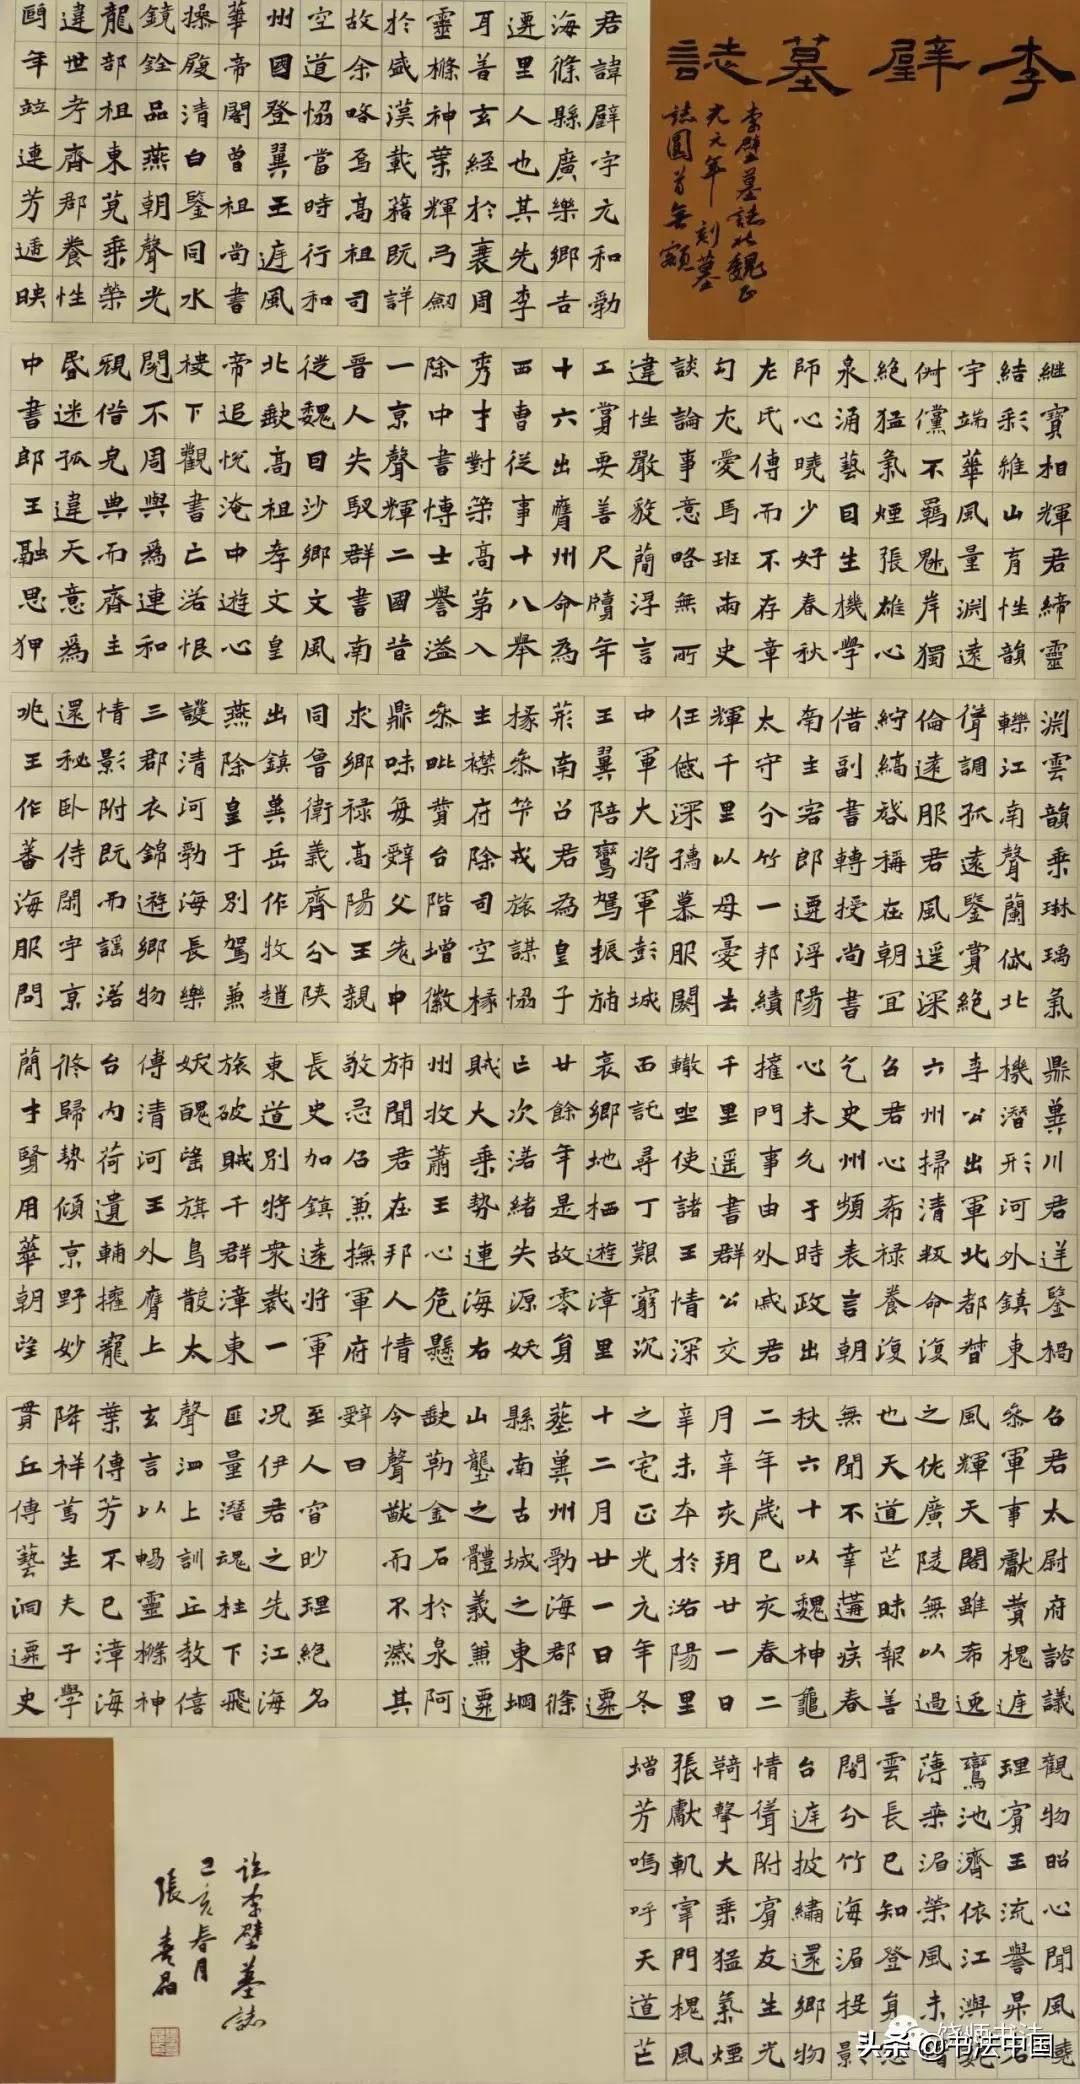 李璧墓誌
李璧墓誌北魏正
光元年刻墓
誌圓首無額
君諱璧字元和勃
海條縣廣樂鄉吉
遷里人也其先李
耳善玄經於襄周
靈櫾神葉輝弓劒
於盛漢載籍既詳
故余略焉高祖司
空道協當時行和
州國登翼王庭風
華帝閣曾祖尚書
操履清白鑒同水
鏡銓品燕朝聲光
龍部祖東莧乘榮
違世考齊郡養性
年竝連芳遞映
繼寶相輝君締靈
結彩維山育性韻
宇端華風量淵遠
倜儻不羈魁岸獨
絕猛氣煙張雄心
泉涌藝目生機學
師心曉少好春秋
左氏傳而不存章
句尤愛馬班兩史
談論事意略無所
違性嚴毅簡浮言
工賞要善尺牘年
十六出膺州命為
西曹從事十八舉
秀才對策高第入
除中書博士譽溢
一京聲輝二國昔
晉人失馭群書南
徙魏因沙鄉文風
北缺高祖孝文皇
帝追悅淹中遊心
稷下觀書亡落恨
閱不周與為連和
規借完典而齊主
昏迷孤違天意為
中書郎王融思狎
淵雲韻乘琳瑀氣
轢江南聲蘭岱北
聳調孤遠鑒賞絕
倫遠服君風遥深
紵縞啓稱在朝宜
借副書轉授尚書
南主客郎遷浮陽
太守分竹一邦績
輝千里以母憂去
任慽深孺慕服闋
中軍大將軍彭城
王翼陪鸞駕振旆
荊南召君為皇子
掾參竿戎旅謀協
主襟府除司空掾
參毗賛台階增徽
鼎味每辭父老申
求鄉祿高陽王親
同魯衛義齊分陝
出鎮冀岳作牧趙
燕除皇于別駕兼
護清河勃海長樂
三郡衣錦遊鄉物
情影附既而謡落
還秘臥侍閑宇京
兆王作蕃海服問
鼎冀川君逆鑒禍
機潛形河外鎮東
李公出軍北都督
六州掃清叛命復
召君心希祿養復
乞史州頻表言朝
心未允于時政出
權門事由外戚君
千里遥書群公交
轍坐使諸王情深
西託尋丁艱窮沉
哀鄉地栖遊漳里
廿餘年是故零身
亡次落緒失源妖
賊大乘勢連海右
州牧蕭王心危懸
旆聞君在邦人情
敬忌召兼撫軍府
長史加鎮遠將軍
東道別將衆裁一
旅破賊千群漳東
妖醜望旗鳥散太
傅清河王外膺上
台內荷遺輔權寵
脩歸勢傾京野妙
簡才賢用華朝望
召君太尉府諮議
參軍事獻賛槐庭
風輝天閣雖希逸
之佐廣陵無以過
也天道芒昧報善
無聞不幸遘疾春
秋六十以魏神龜
二年歲己亥春二
月辛亥朔廿一日
辛未卒於洛陽里
之宅正光元年冬
十二月廿一日遷
葬冀州勃海郡條
縣南古城之東堈
山壟之體義兼遷
缺勒金石於泉阿
令聲猷而不滅其
辭曰
至人窅眇理絕名
況伊君之先江海
匪量潛魂柱下飛
聲泗上訓正教僖
玄言以暢靈櫾神
葉傳芳不已漳海
降祥篤生夫子學
貫丘傳藝洞遷史
觀物昭心聞風曉
理賓王流譽昇名
鸞池濟依江
薄乘湄榮風未
雲長已知登身
閣分竹海湄投影
台庭披繡還鄉物
情聳附賓友生光
擊大乘猛氣煙
張獻軌宰門槐風
增芳嗚呼天道芒
臨李璧墓誌
己亥春月
張
头条 @书法中国